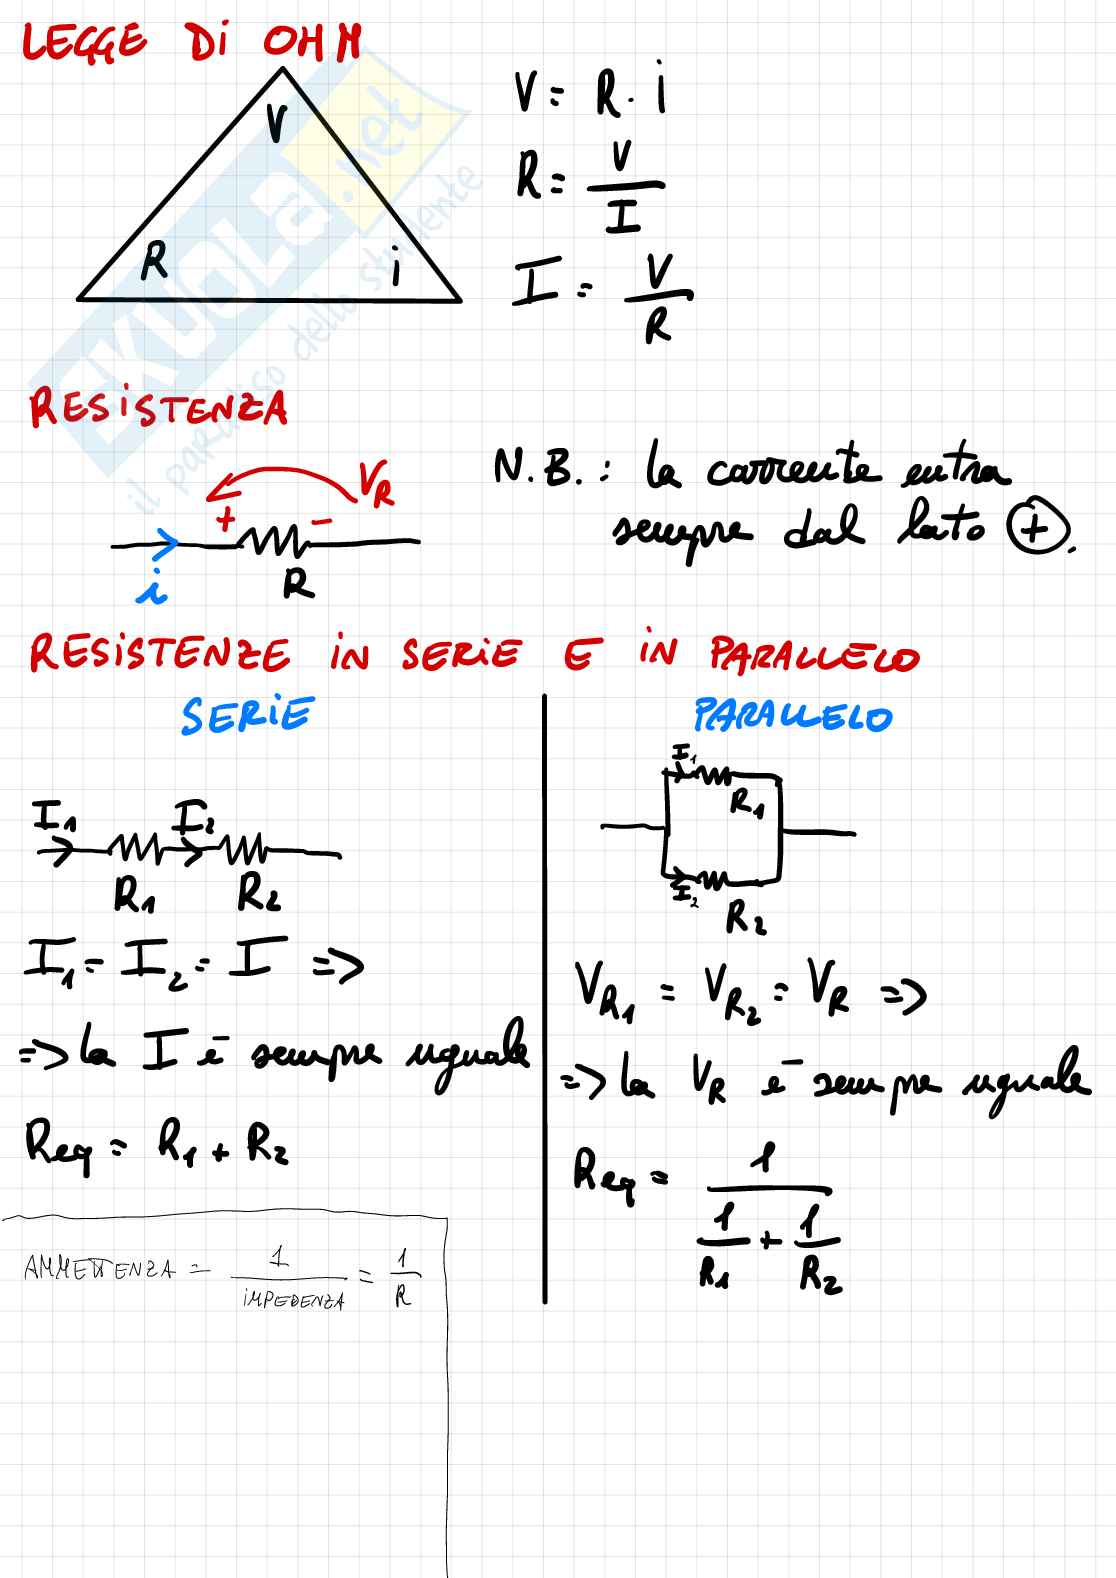 LEGGE Di OHM
V
R
i
V = R · i
R = V / I
I = V / R
SKUOLA.net
il paradiso dello studente
RESiSTENZA
VR
+ -
i
R
N.B.: la corrente entra
sempre dal lato +.
RESiSTENZE in SERiE E in PARALLELO
SERiE
I1 I2
R1 R2
I1 = I2 = I =>
=> la I è sempre uguale
Req = R1 + R2
AMMETTENZA = 1 / iMPEDENZA = 1 / R
PARALLELO
I1
R1
I2
R2
VR1 = VR2 = VR =>
=> la VR è sempre uguale
Req = 1 / (1/R1 + 1/R2)